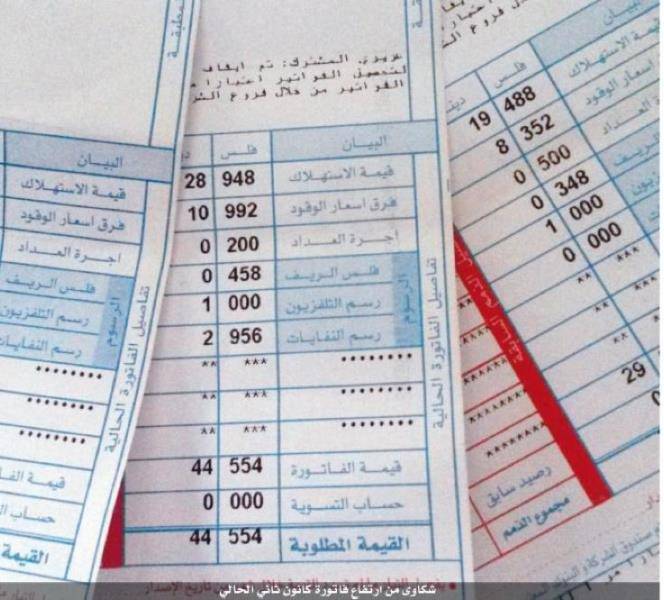 عزيزي المشترك: تم ايقاف
لتحصيل الفواتير اعتبارا م
الفواتير من خلال فروع الشر
البيان فلس دي
قيمة الاستهلاك 948 28
فرق اسعار الوقود 992 10
اجرة العداد 200 0
فلس الريف 458 0
رسم التلفزيون 000 1
رسم النفايات 956 2
الرسوم
******** *** **
******** *** **
قيمة الفاتورة 554 44
حساب التسوية 000 0
القيمة المطلوبة 554 44
تفاصيل الفاتورة الحالية
البيان
قيمة الاستهلاك
فرق اسعار الوقود
اجرة العداد
فلس الريف
رسم التلفزيون
رسم النفايات
الرسوم
********
********
********
قيمة الفاتورة
حساب
القيمة
تفاصيل الفاتورة الحالية
البيان فلس دينـ
قيمة الاستهلاك 488 19
اسعار الوقود 352 8
العداد 500 0
الريف 348 0
يزيون 000 1
000 0
29
رصيد سابق
مجموع الذمم
شكاوى من ارتفاع فاتورة كانون ثاني الحالي